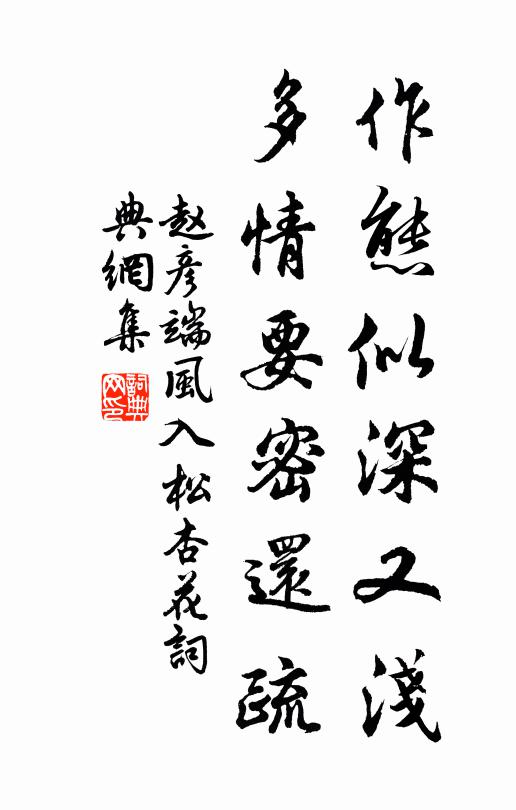 作態似深又淺
多情要密還疏
赵彥端風入松杏花詞
典網集
詞典網印